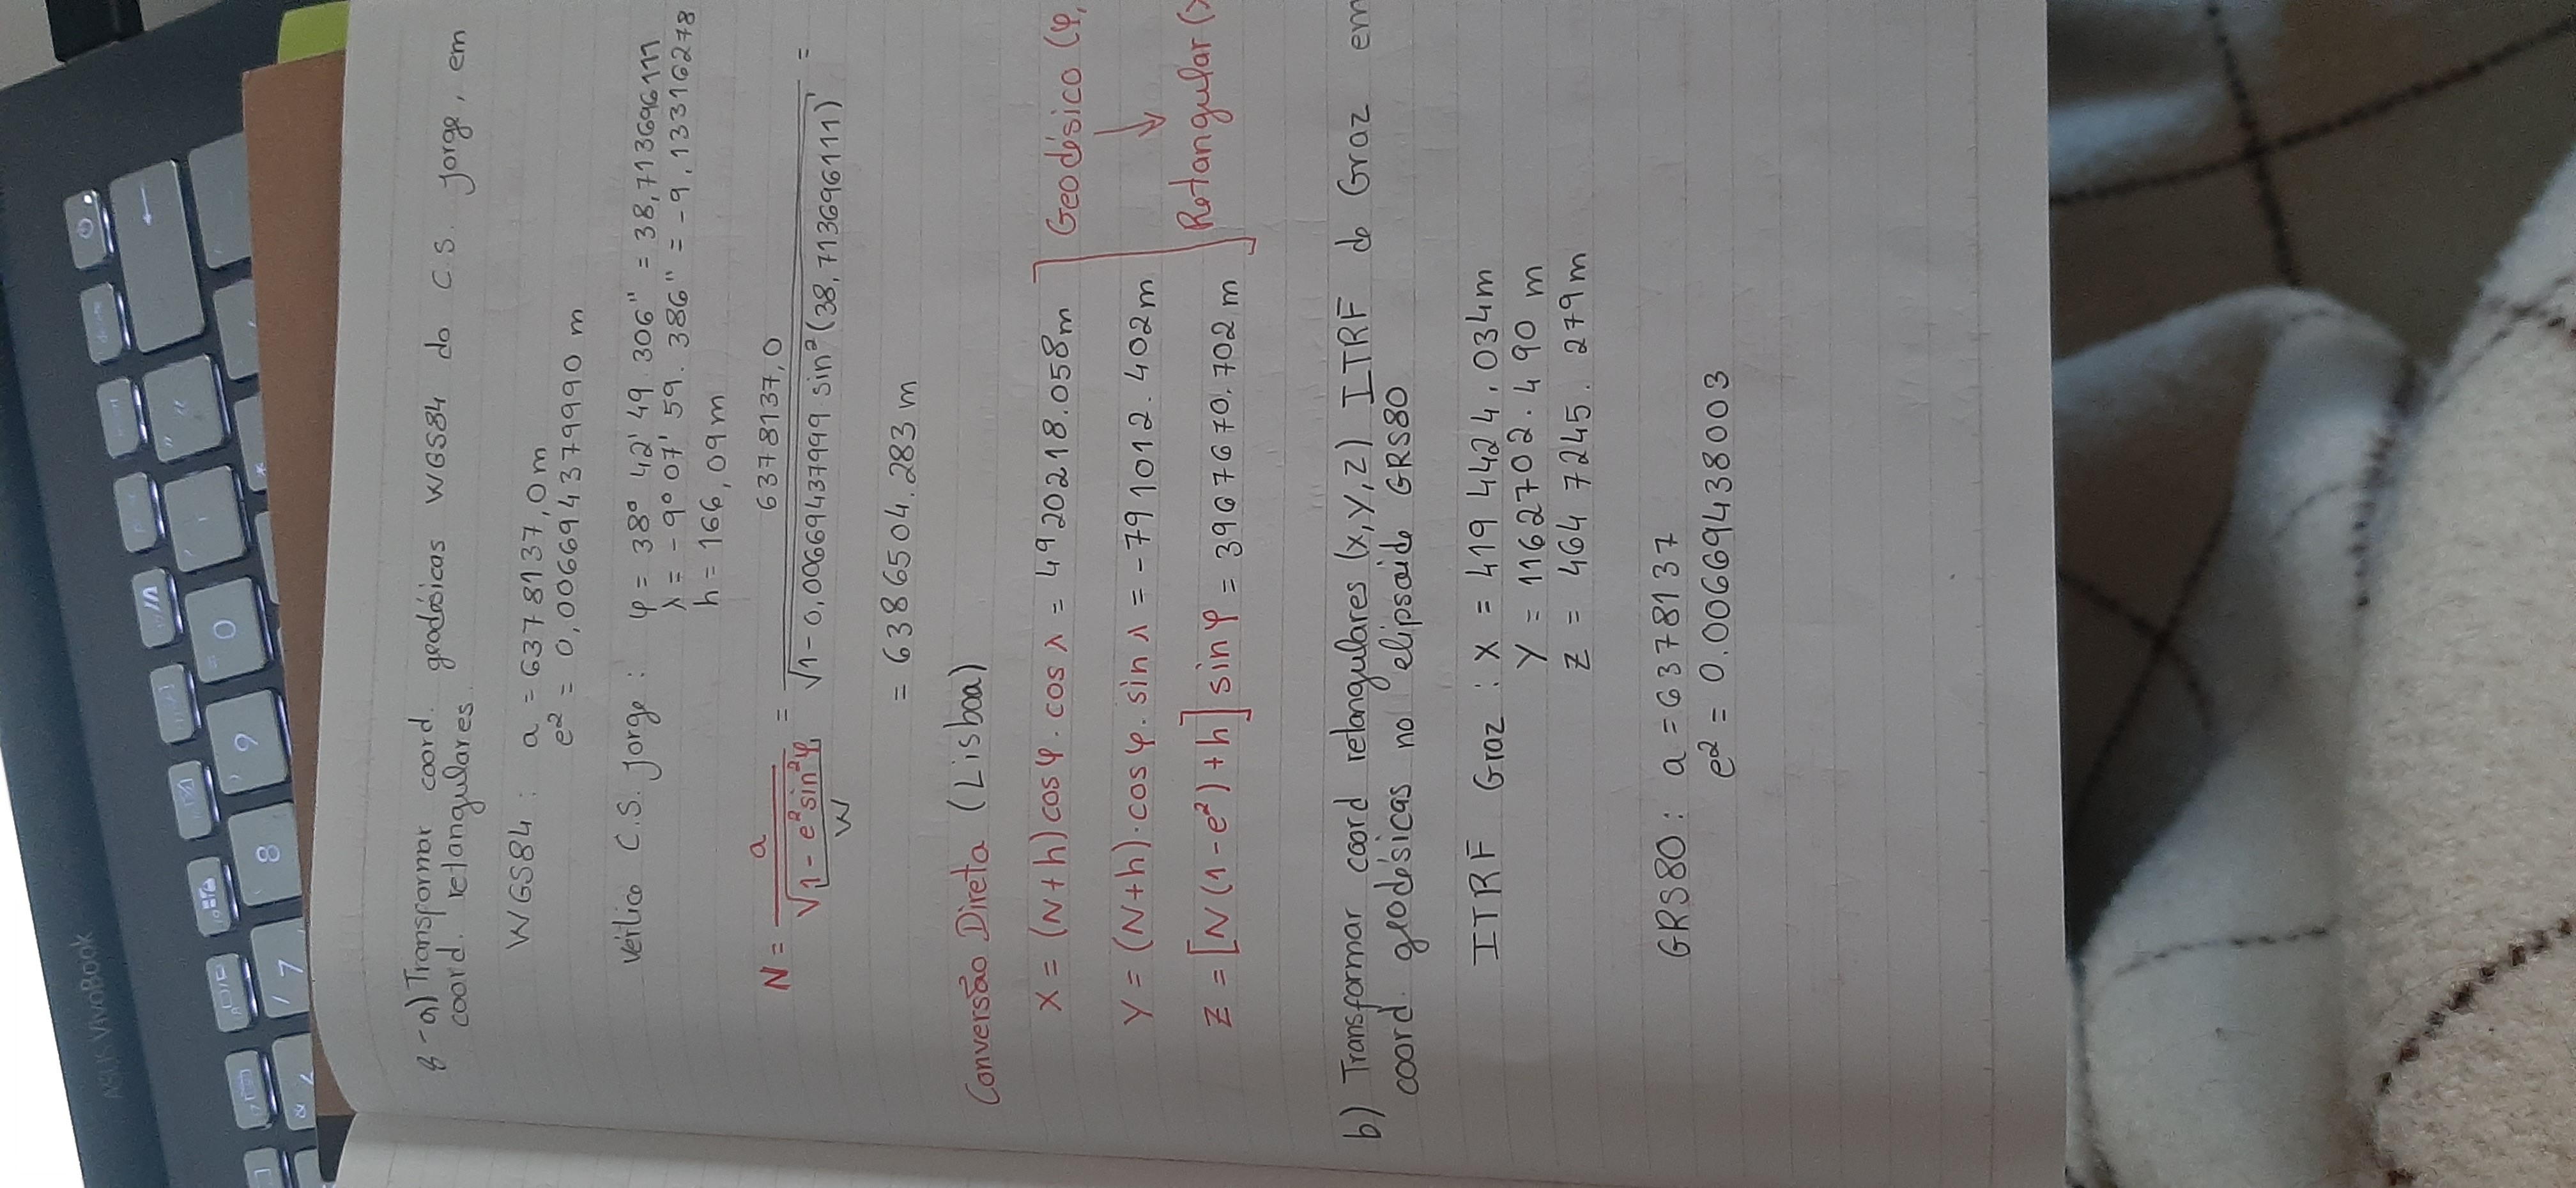 ASUS VivoBook
7
8
9
0
8-a) Transformar coord. geodésicas WGS84 do C.S. Jorge, em
coord. retangulares.
WGS84 : a = 6378137,0 m
e² = 0,006694379990 m
vértice C.S. Jorge : φ = 38° 42' 49.306" = 38,713696111
λ = -9° 07' 59.386" = -9,13316278
h = 166,09 m
N = a / √(1 - e² sin² φ) = 6378137,0 / √(1 - 0,00669437999 sin² (38,713696111)) =
W
= 6386504.283 m
Conversão Direta (Lisboa)
X = (N+h) cos φ . cos λ = 4920218.058 m
Geodésico (φ,
Y = (N+h) . cos φ . sin λ = -791012.402 m
↓
Z = [N (1 - e²) + h] sin φ = 3967670.702 m
Retangular (x
b) Transformar coord retangulares (x, y, z) ITRF de Graz em
coord. geodésicas no elipsoide GRS80
ITRF Graz : X = 4194424.034 m
Y = 1162702.490 m
Z = 4647245.279 m
GRS80 : a = 6378137
e² = 0.00669438003